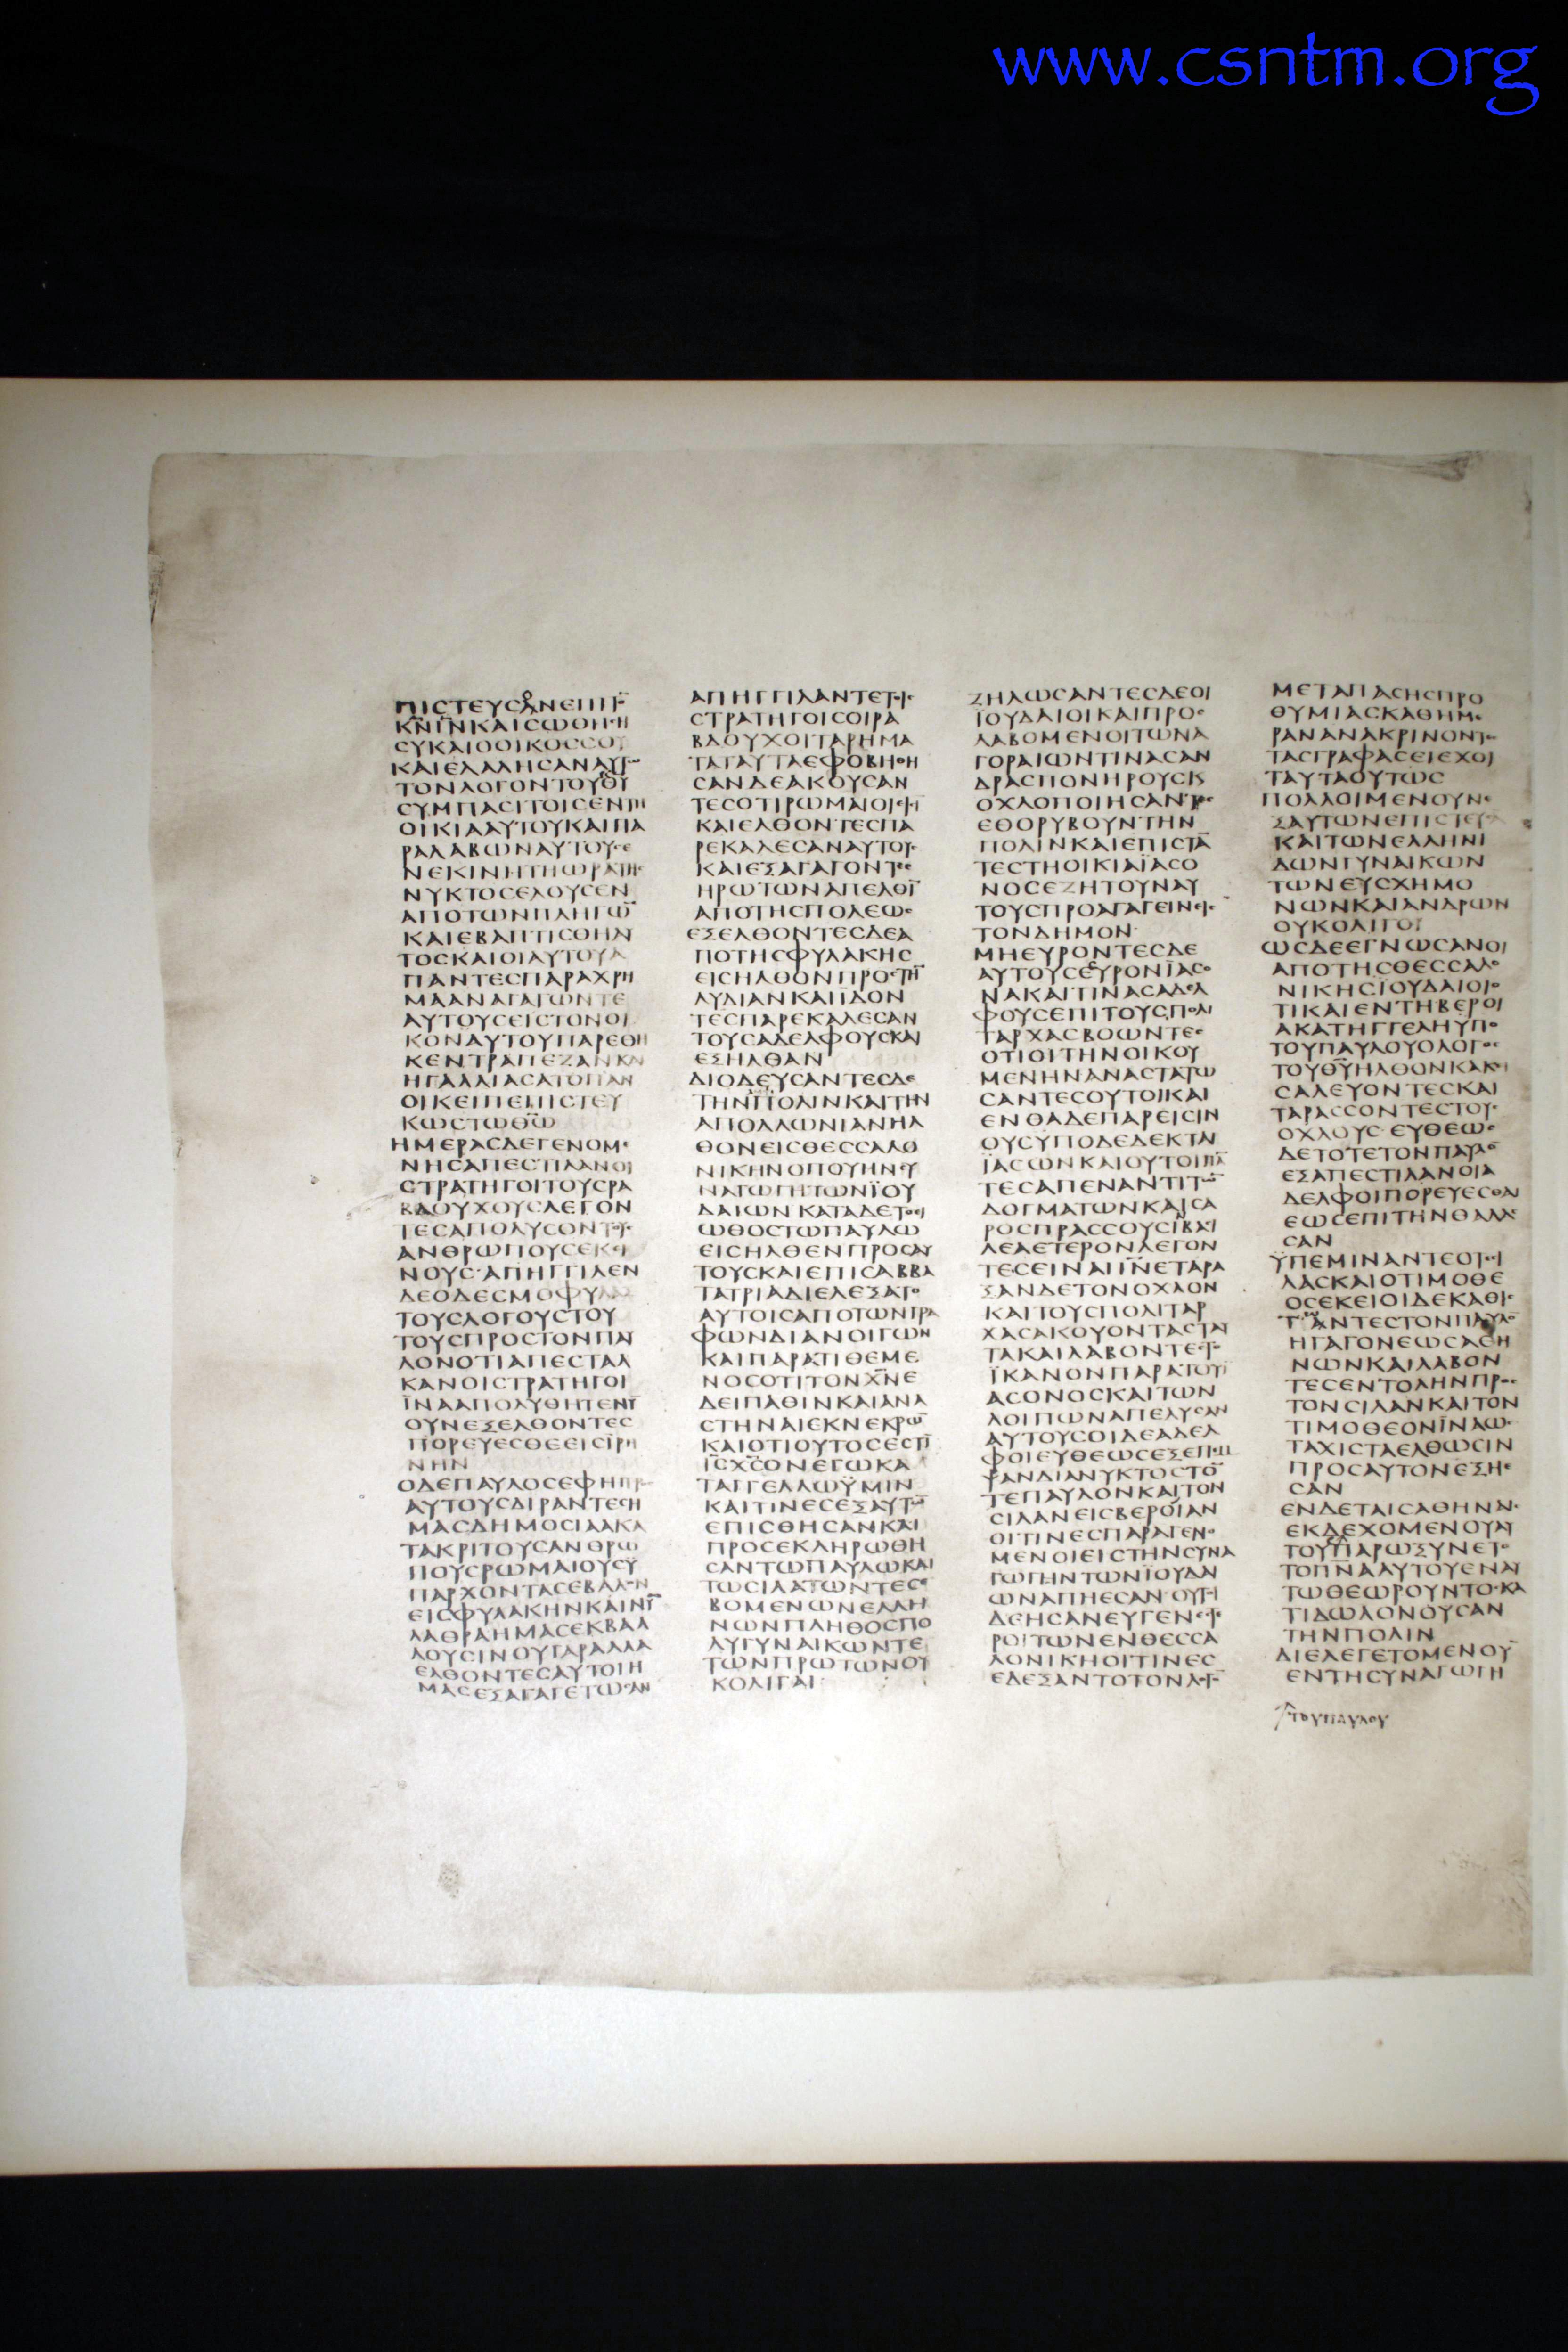 www.csntm.org
ΠΙCΤΕΥCΟΝΕΠΙΤ̅
ΚΝ̅ΙΝ̅ΚΑΙCΩΘΗCΗ
CΥΚΑΙΟΟΙΚΟCCΟΥ
ΚΑΙΕΛΑΛΗCΑΝΑΥΤΩ
ΤΟΝΛΟΓΟΝΤΟΥΘΥ̅
CΥΜΠΑCΙΤΟΙCΕΝΤΗ
ΟΙΚΙΑΑΥΤΟΥΚΑΙΠΑ
ΡΑΛΑΒΩΝΑΥΤΟΥCΕ
ΝΕΚΙΝΗΤΗΩΡΑΤΗC
ΝΥΚΤΟCΕΛΟΥCΕΝ
ΑΠΟΤΩΝΠΛΗΓΩ̅
ΚΑΙΕΒΑΠΤΙCΘΗΑΥ
ΤΟCΚΑΙΟΙΑΥΤΟΥΑ
ΠΑΝΤΕCΠΑΡΑΧΡΗ
ΜΑΑΝΑΓΑΓΩΝΤΕ
ΑΥΤΟΥCΕΙCΤΟΝΟΙ
ΚΟΝΑΥΤΟΥΠΑΡΕΘΗ
ΚΕΝΤΡΑΠΕΖΑΝΚΑΙ
ΗΓΑΛΛΙΑCΑΤΟΠΑΝ
ΟΙΚΕΙΠΕΠΙCΤΕΥ
ΚΩCΤΩΘΩ̅
ΗΜΕΡΑCΔΕΓΕΝΟΜΕ
ΝΗCΑΠΕCΤΙΛΑΝΟΙ
CΤΡΑΤΗΓΟΙΤΟΥCΡΑ
ΒΔΟΥΧΟΥCΛΕΓΟΝ
ΤΕCΑΠΟΛΥCΟΝΤΟΥC
ΑΝΘΡΩΠΟΥCΕΚΕΙ
ΝΟΥCΑΠΗΓΓΙΛΕΝ
ΔΕΟΔΕCΜΟΦΥΛΑΞ
ΤΟΥCΛΟΓΟΥCΤΟΥ
ΤΟΥCΠΡΟCΤΟΝΠΑΥ
ΛΟΝΟΤΙΑΠΕCΤΑΛ
ΚΑΝΟΙCΤΡΑΤΗΓΟΙ
ΪΝΑΑΠΟΛΥΘΗΤΕΝΥ̅
ΟΥΝΕΞΕΛΘΟΝΤΕC
ΠΟΡΕΥΕCΘΕΕΙCΪΡΗ
ΝΗΝ
ΟΔΕΠΑΥΛΟCΕΦΗΠΡΟC
ΑΥΤΟΥCΔΙΡΑΝΤΕCΗ
ΜΑCΔΗΜΟCΙΑΑΚΑ
ΤΑΚΡΙΤΟΥCΑΝΘΡΩ
ΠΟΥCΡΩΜΑΙΟΥCΥ
ΠΑΡΧΟΝΤΑCΕΒΑΛΑΝ
ΕΙCΦΥΛΑΚΗΝΚΑΙΝΥ̅
ΛΑΘΡΑΗΜΑCΕΚΒΑΛ
ΛΟΥCΙΝΟΥΓΑΡΑΛΛΑ
ΕΛΘΟΝΤΕCΑΥΤΟΙΗ
ΜΑCΕΞΑΓΑΓΕΤΩCΑΝ
ΑΠΗΓΓΙΛΑΝΤΕΤΟΙC
CΤΡΑΤΗΓΟΙCΟΙΡΑ
ΒΔΟΥΧΟΙΤΑΡΗΜΑ
ΤΑΤΑΥΤΑΕΦΟΒΗΘΗ
CΑΝΔΕΑΚΟΥCΑΝ
ΤΕCΟΤΙΡΩΜΑΙΟΙΕΙCΙ
ΚΑΙΕΛΘΟΝΤΕCΠΑ
ΡΕΚΑΛΕCΑΝΑΥΤΟΥC
ΚΑΙΕΞΑΓΑΓΟΝΤΕC
ΗΡΩΤΩΝΑΠΕΛΘΙ̅
ΑΠΟΤΗCΠΟΛΕΩC
ΕΞΕΛΘΟΝΤΕCΔΕΑ
ΠΟΤΗCΦΥΛΑΚΗC
ΕΙCΗΛΘΟΝΠΡΟCΤΗ̅
ΛΥΔΙΑΝΚΑΙΪΔΟΝ
ΤΕCΠΑΡΕΚΑΛΕCΑΝ
ΤΟΥCΑΔΕΛΦΟΥCΚΑΙ
ΕΞΗΛΘΑΝ
ΔΙΟΔΕΥCΑΝΤΕCΔΕ
ΤΗΝΠΟΛΙΝΚΑΙΤΗΝ
ΑΠΟΛΛΩΝΙΑΝΗΛ
ΘΟΝΕΙCΘΕCCΑΛΟ
ΝΙΚΗΝΟΠΟΥΗΝCΥ
ΝΑΓΩΓΗΤΩΝΪΟΥ
ΔΑΙΩΝΚΑΤΑΔΕΤΟΕΙ
ΩΘΟCΤΩΠΑΥΛΩ
ΕΙCΗΛΘΕΝΠΡΟCΑΥ
ΤΟΥCΚΑΙΕΠΙCΑΒΒΑ
ΤΑΤΡΙΑΔΙΕΛΕΞΑΤΟ
ΑΥΤΟΙCΑΠΟΤΩΝΓΡΑ
ΦΩΝΔΙΑΝΟΙΓΩΝ
ΚΑΙΠΑΡΑΤΙΘΕΜΕ
ΝΟCΟΤΙΤΟΝΧΝ̅Ε
ΔΕΙΠΑΘΙΝΚΑΙΑΝΑ
CΤΗΝΑΙΕΚΝΕΚΡΩ̅
ΚΑΙΟΤΙΟΥΤΟCΕCΤΙ̅
ΙC̅ΧC̅ΟΝΕΓΩΚΑ
ΤΑΓΓΕΛΛΩΫΜΙΝ
ΚΑΙΤΙΝΕCΕΞΑΥΤΩ̅
ΕΠΙCΘΗCΑΝΚΑΙ
ΠΡΟCΕΚΛΗΡΩΘΗ
CΑΝΤΩΠΑΥΛΩΚΑΙ
ΤΩCΙΛΑΤΩΝΤΕCΕ
ΒΟΜΕΝΩΝΕΛΛΗ
ΝΩΝΠΛΗΘΟCΠΟ
ΛΥΓΥΝΑΙΚΩΝΤΕ
ΤΩΝΠΡΩΤΩΝΟΥ
ΚΟΛΙΓΑΙ
ΖΗΛΩCΑΝΤΕCΔΕΟΙ
ΪΟΥΔΑΙΟΙΚΑΙΠΡΟC
ΛΑΒΟΜΕΝΟΙΤΩΝΑ
ΓΟΡΑΙΩΝΤΙΝΑCΑΝ
ΔΡΑCΠΟΝΗΡΟΥCΚ
ΟΧΛΟΠΟΙΗCΑΝΤΕC
ΕΘΟΡΥΒΟΥΝΤΗΝ
ΠΟΛΙΝΚΑΙΕΠΙCΤΑ̅
ΤΕCΤΗΟΙΚΙΑΪΑCΟ
ΝΟCΕΖΗΤΟΥΝΑΥ
ΤΟΥCΠΡΟΑΓΑΓΕΙΝΕΙC
ΤΟΝΔΗΜΟΝ
ΜΗΕΥΡΟΝΤΕCΔΕ
ΑΥΤΟΥCΕCΥΡΟΝΪΑCΟ
ΝΑΚΑΙΤΙΝΑCΑΔΕΛ
ΦΟΥCΕΠΙΤΟΥCΠΟΛΙ
ΤΑΡΧΑCΒΟΩΝΤΕC
ΟΤΙΟΙΤΗΝΟΙΚΟΥ
ΜΕΝΗΝΑΝΑCΤΑΤΩ
CΑΝΤΕCΟΥΤΟΙΚΑΙ
ΕΝΘΑΔΕΠΑΡΕΙCΙΝ
ΟΥCΥΠΟΔΕΔΕΚΤΑΙ
ΪΑCΩΝΚΑΙΟΥΤΟΙΠΑ̅
ΤΕCΑΠΕΝΑΝΤΙΤΩ̅
ΔΟΓΜΑΤΩΝΚΑΙCΑ
ΡΟCΠΡΑCCΟΥCΙΒΑCΙ
ΛΕΑΕΤΕΡΟΝΛΕΓΟΝ
ΤΕCΕΙΝΑΙΙΝ̅ΕΤΑΡΑ
ΞΑΝΔΕΤΟΝΟΧΛΟΝ
ΚΑΙΤΟΥCΠΟΛΙΤΑΡ
ΧΑCΑΚΟΥΟΝΤΑCΤΑΥ
ΤΑΚΑΙΛΑΒΟΝΤΕCΤΟ
ΪΚΑΝΟΝΠΑΡΑΤΟΥΪ
ΑCΟΝΟCΚΑΙΤΩΝ
ΛΟΙΠΩΝΑΠΕΛΥCΑΝ
ΑΥΤΟΥCΟΙΔΕΑΔΕΛ
ΦΟΙΕΥΘΕΩCΕΞΕΠΕΜ
ΨΑΝΔΙΑΝΥΚΤΟCΤΟ̅
ΤΕΠΑΥΛΟΝΚΑΙΤΟΝ
CΙΛΑΝΕΙCΒΕΡΟΙΑΝ
ΟΙΤΙΝΕCΠΑΡΑΓΕΝΟ
ΜΕΝΟΙΕΙCΤΗΝCΥΝΑ
ΓΩΓΗΝΤΩΝΪΟΥΔΑΙ
ΩΝΑΠΗΕCΑΝΟΥΤΟΙ
ΔΕΗCΑΝΕΥΓΕΝΕCΤΕ
ΡΟΙΤΩΝΕΝΘΕCCΑ
ΛΟΝΙΚΗΟΙΤΙΝΕC
ΕΔΕΞΑΝΤΟΤΟΝΛΟΓΟ̅
ΜΕΤΑΠΑCΗCΠΡΟ
ΘΥΜΙΑCΚΑΘΗΜΕ
ΡΑΝΑΝΑΚΡΙΝΟΝΤΕC
ΤΑCΓΡΑΦΑCΕΙΕΧΟΙ
ΤΑΥΤΑΟΥΤΩC
ΠΟΛΛΟΙΜΕΝΟΥΝΕ
ΞΑΥΤΩΝΕΠΙCΤΕΥCΑ
ΚΑΙΤΩΝΕΛΛΗΝΙ
ΔΩΝΓΥΝΑΙΚΩΝ
ΤΩΝΕΥCΧΗΜΟ
ΝΩΝΚΑΙΑΝΔΡΩΝ
ΟΥΚΟΛΙΓΟΙ
ΩCΔΕΕΓΝΩCΑΝΟΙ
ΑΠΟΤΗCΘΕCCΑΛΟ
ΝΙΚΗCΪΟΥΔΑΙΟΙΟ
ΤΙΚΑΙΕΝΤΗΒΕΡΟΙ
ΑΚΑΤΗΓΓΕΛΗΥΠΟ
ΤΟΥΠΑΥΛΟΥΟΛΟΓΟC
ΤΟΥΘΥ̅ΗΛΘΟΝΚΑΚΕΙ
CΑΛΕΥΟΝΤΕCΚΑΙ
ΤΑΡΑCCΟΝΤΕCΤΟΥC
ΟΧΛΟΥCΕΥΘΕΩC
ΔΕΤΟΤΕΤΟΝΠΑΥΛΟ̅
ΕΞΑΠΕCΤΙΛΑΝΟΙΑ
ΔΕΛΦΟΙΠΟΡΕΥΕCΘΑΙ
ΕΩCΕΠΙΤΗΝΘΑΛΑC
CΑΝ
ΫΠΕΜΙΝΑΝΤΕΟΤΕCΙ
ΛΑCΚΑΙΟΤΙΜΟΘΕ
ΟCΕΚΕΙΟΙΔΕΚΑΘΙC
ΤΑΝΤΕCΤΟΝΠΑΥΛΟ̅
ΗΓΑΓΟΝΕΩCΑΘΗ
ΝΩΝΚΑΙΛΑΒΟΝ
ΤΕCΕΝΤΟΛΗΝΠΡΟC
ΤΟΝCΙΛΑΝΚΑΙΤΟΝ
ΤΙΜΟΘΕΟΝΪΝΑΩC
ΤΑΧΙCΤΑΕΛΘΩCΙΝ
ΠΡΟCΑΥΤΟΝΕΞΗΕ
CΑΝ
ΕΝΔΕΤΑΙCΑΘΗΝΑΙC
ΕΚΔΕΧΟΜΕΝΟΥΑΥ
ΤΟΥΠΑΡΩΞΥΝΕΤΟ
ΤΟΠΝΑ̅ΑΥΤΟΥΕΝΑΥ
ΤΩΘΕΩΡΟΥΝΤΟCΚΑ
ΤΙΔΩΛΟΝΟΥCΑΝ
ΤΗΝΠΟΛΙΝ
ΔΙΕΛΕΓΕΤΟΜΕΝΟΥ̅
ΕΝΤΗCΥΝΑΓΩΓΗ
ΤΟΥΠΑΥΛΟΥ